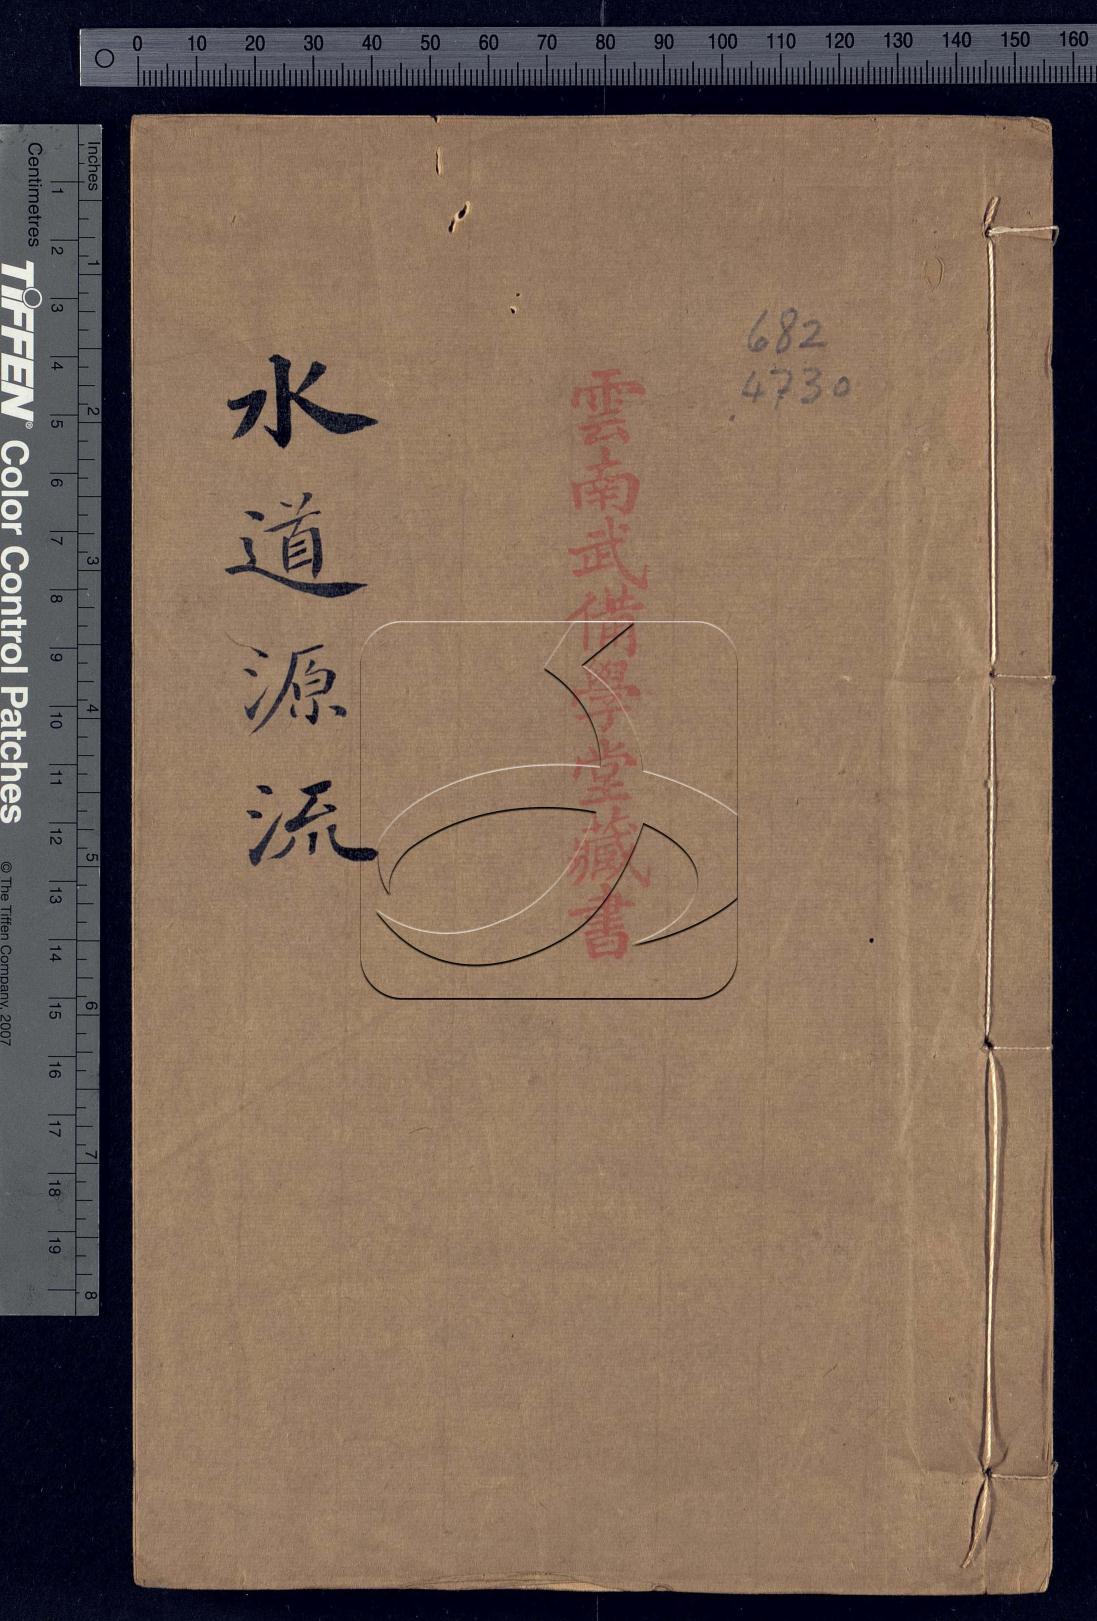 0 10 20 30 40 50 60 70 80 90 100 110 120 130 140 150 160
Inches
1 2 3 4 5 6 7 8
Centimetres
1 2 3 4 5 6 7 8 9 10 11 12 13 14 15 16 17 18 19
TIFFEN® Color Control Patches
© The Tiffen Company, 2007
682
4730
雲南武備學堂藏書
水道源流